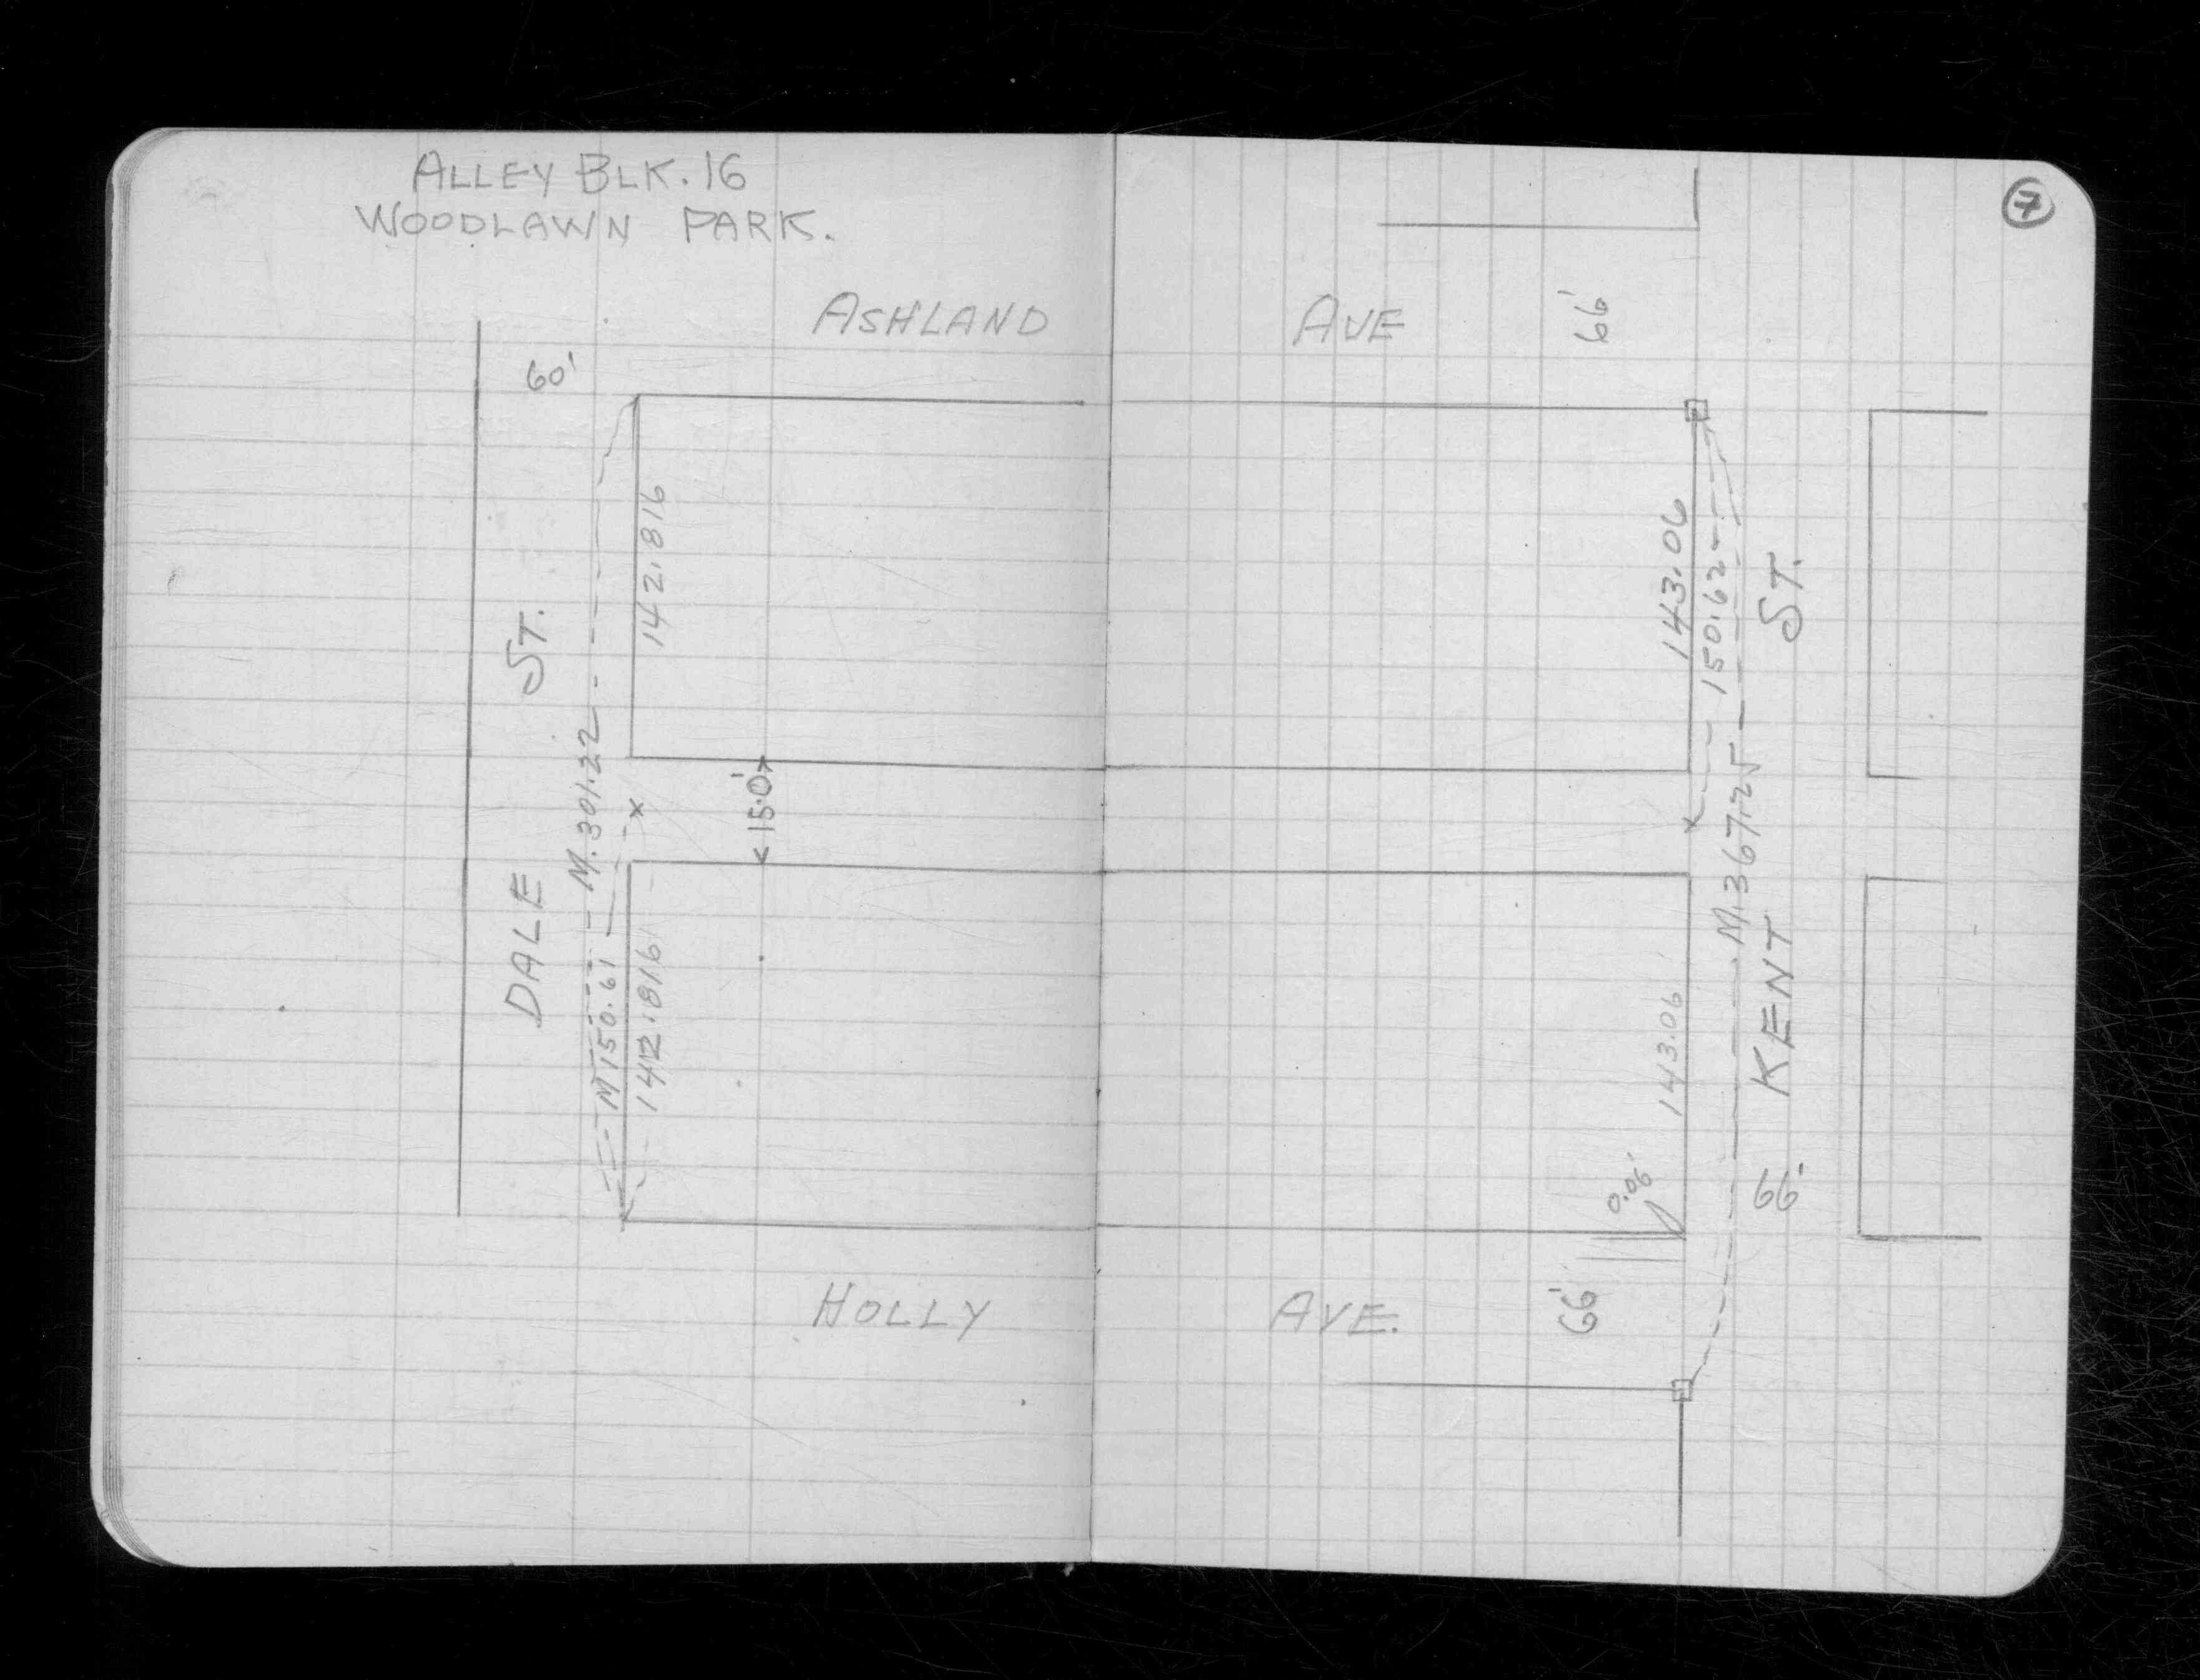 ALLEY BLK. 16
WOODLAWN PARK.
7
ASHLAND AVE 66'
60'
DALE ST.
M. 301.22
M 150.61
142.816
142.816
15.0'
143.06
150.62
M. 367.25
KENT ST.
143.06
0.06'
66'
HOLLY AVE. 66'